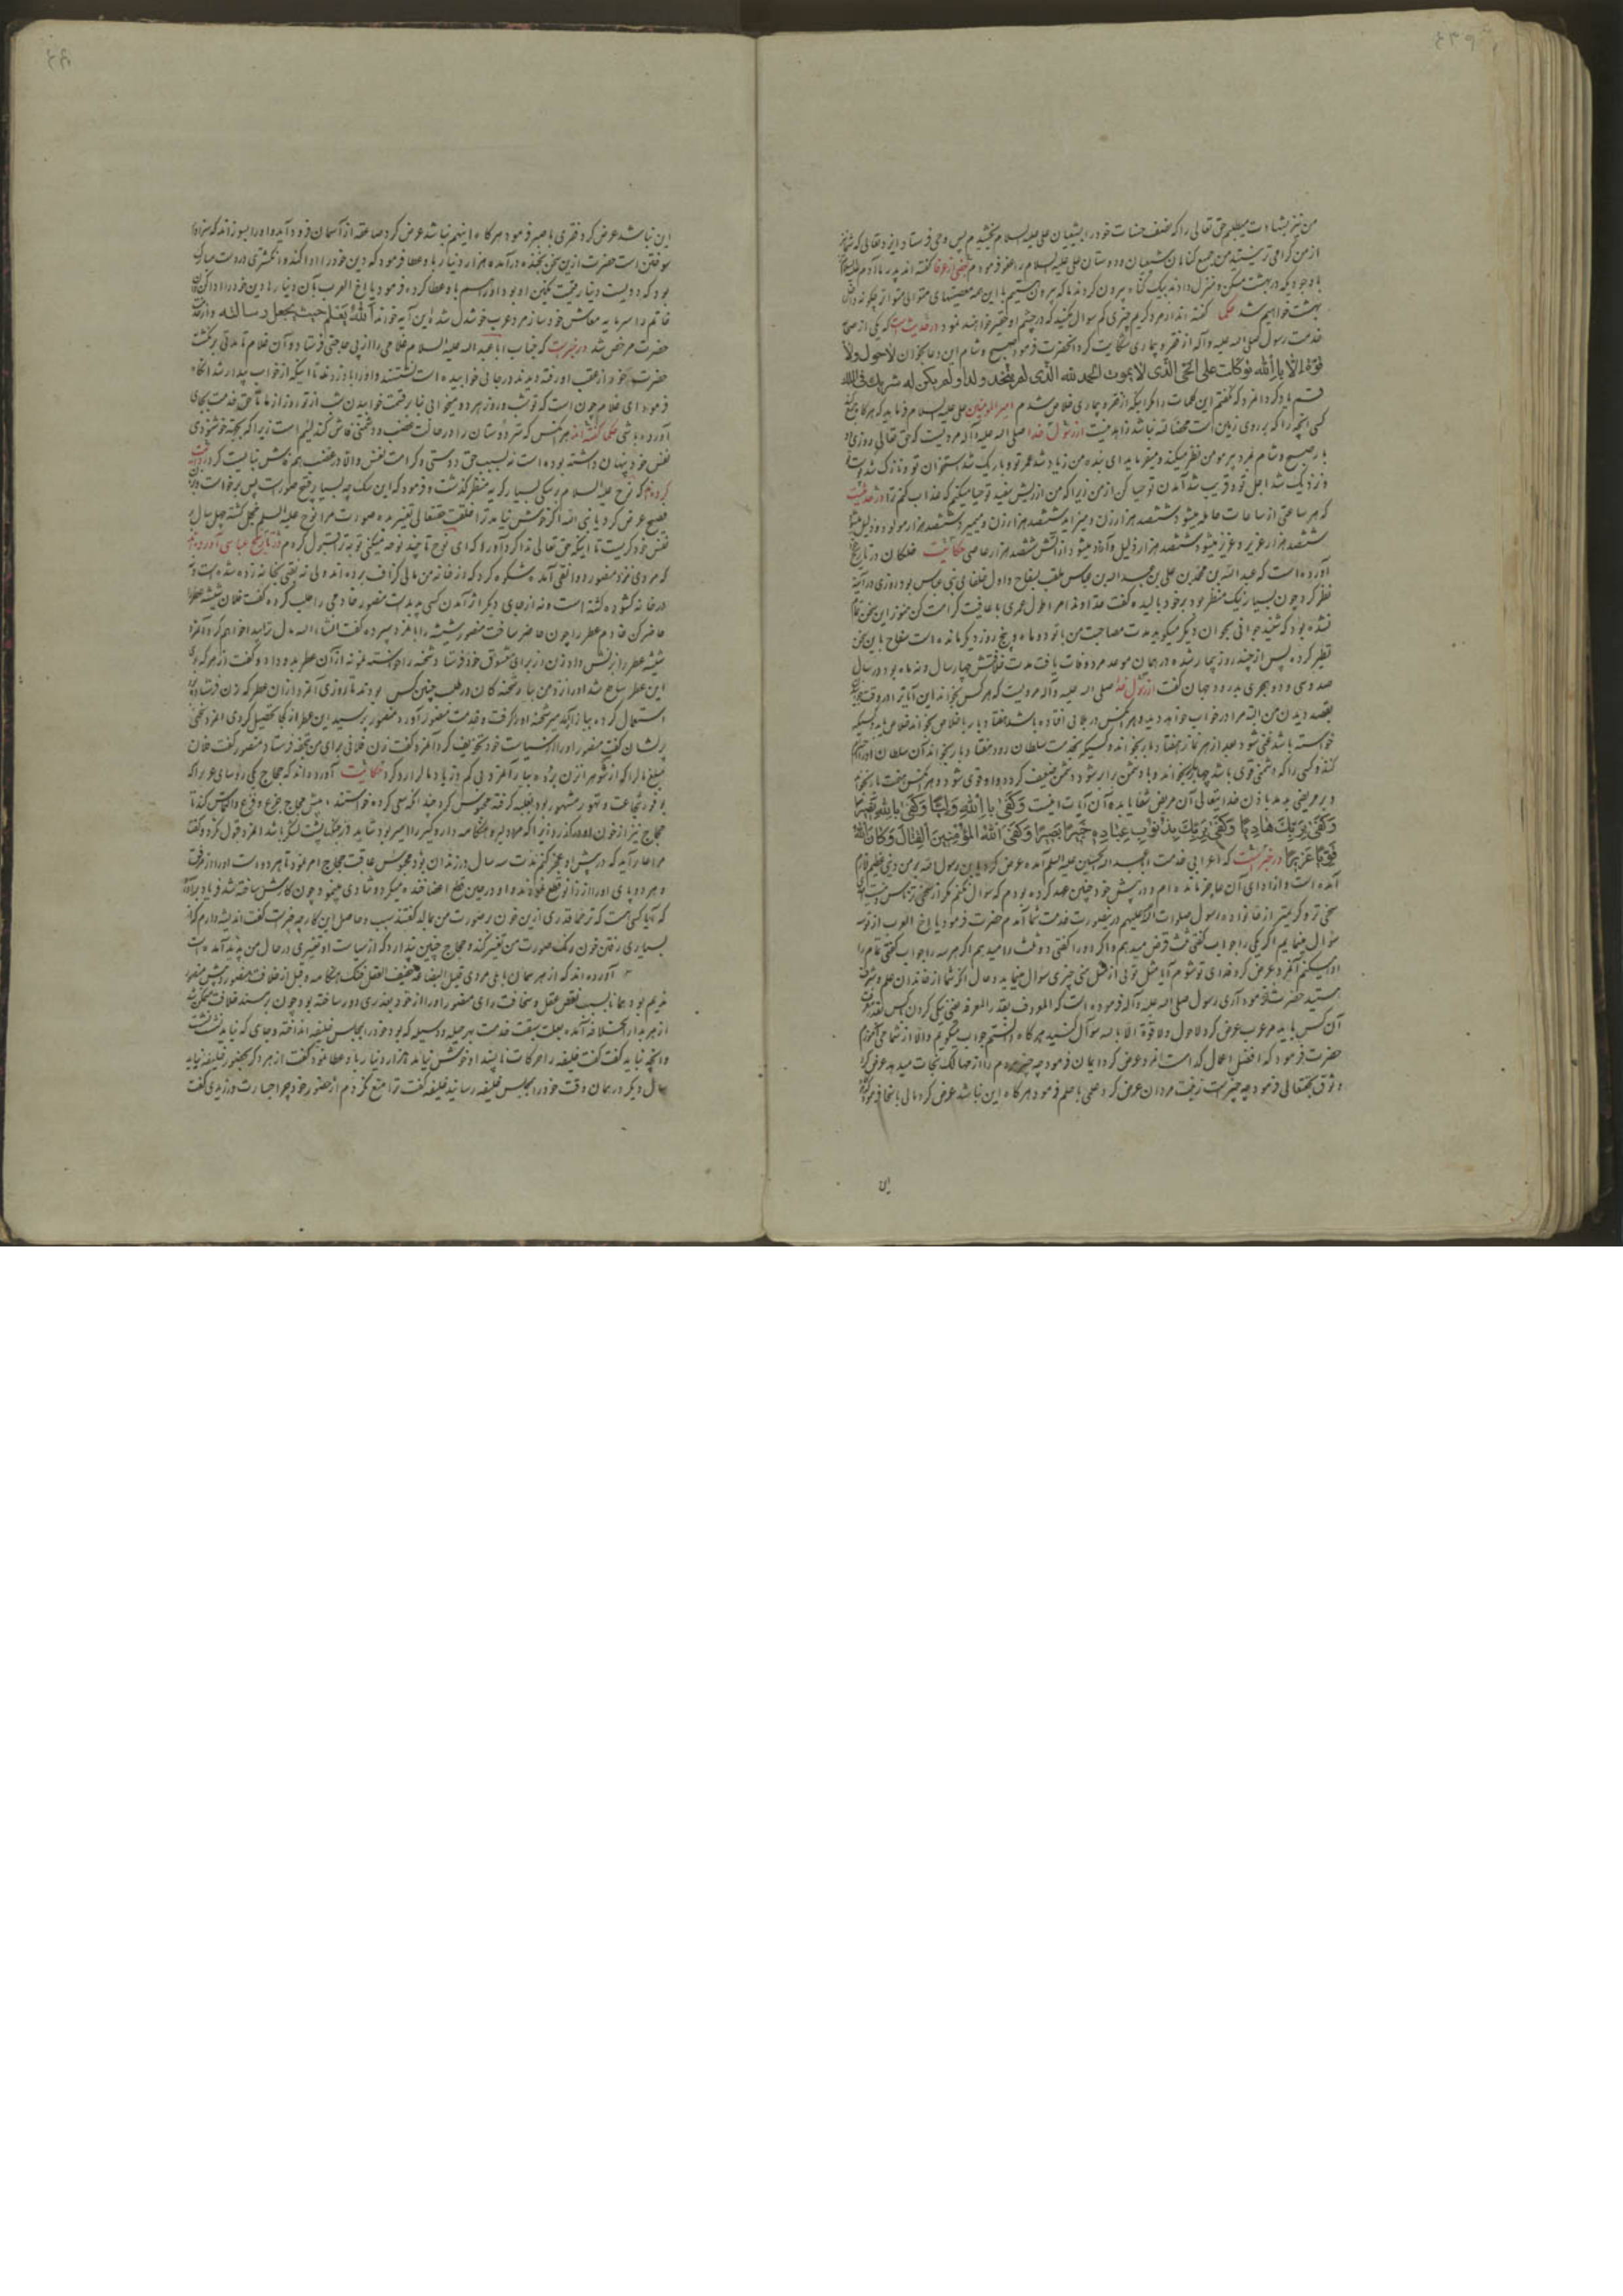 من نیز بشهادت میطلبم حق تعالی را که نصف حسنات خود را بشیعیان علی علیه السلام بخشیدم پس وحی فرستاد ایزد تعالی که شما
از من کرامی تر نیستید من جمیع کناهان شیعیان و دوستان علی علیه السلام را عفو فرمودم بعضی از عرفا کفته اند پدر ما آدم علیه السلام
با وجودیکه در بهشت مسکن و منزل دادند بیک کناه بیرون کردند ما که بیرون هستیم با این همه معصیتهای متوالی متواتر چکونه داخل
بهشت خواهیم شد حکما کفته اند از مرد کریم چیزی کم سوال مکنید که در چشم او حقیر خواهد نمود در حدیث است که یکی از صحابه
خدمت رسول صلی الله علیه و آله از فقر و بیماری شکایت کرد آنحضرت فرمود صبح و شام این دعا بخوان لاحول ولا
قوة الا بالله توکلت علی الحی الذی لا یموت الحمد لله الذی لم یتخذ ولدا ولم یکن له شریک فی الملک
قسم یاد کرد آنمرد که نگفتم این کلمات را مکر اینکه از فقر و بیماری خلاص شدم امیر المؤمنین علی علیه السلام فرماید که هرکاه جمع کند
کسی آنچه را که بر روی زمین است مخالفته نباشد زاهد نیست از رسول خدا صلی الله علیه و آله مرویست که حق تعالی روزی دو
بار صبح و شام بمرد پیر مومن نظر میکند و میفرماید ای بنده من زیاد شد عمر تو و باریک شد استخوان تو و نازک شد پوست تو
و نزدیک شد اجل تو و قریب شد آمدن تو حیا کن از من زیرا که من از ریش سفید تو حیا میکنم که عذاب کنم ترا در حدیث است
که هر ساعتی از ساعات حامله میشود ششصد هزار زن و میزاید ششصد هزار زن و میمیرد ششصد هزار مولود و ذلیل میشود
ششصد هزار عزیز و عزیز میشود ششصد هزار ذلیل و آزاد میشود از آتش ششصد هزار عاصی حکایت خلکان در تاریخ
آورده است که عبد الله بن محمد بن علی بن عبد الله بن عباس ملقب بسفاح و اول خلفای بنی عباس بود روزی در آینه
نظر کرد چون بسیار نیک منظر بود بر خود بالیده گفت خداوندا مرا طول عمری با عافیت کرامت کن هنوز این سخن تمام
نشده بود که شنید جوانی بجوان دیگر میکوید مدت مصاحبت من با تو دو ماه و پنج روز دیکر مانده است سفاح باین سخن
تطیر کرده پس از چند روز بیمار شده در همان موعد مرد وفات یافت مدت خلافتش چهار سال و نه ماه بود در سال
صد و سی و دو هجری بدرود جهان گفت از رسول خدا صلی الله علیه و آله مرویست که هر کس بخواند این آیات را در وقت خواب
بقصد دیدن من البته مرا در خواب خواهد دید و هر کس در بلائی افتاده باشد هفتاد بار باخلاص بخواند خلاص یابد و کسیکه
خواسته باشد غنی شود بعد از هر نماز هفتاد بار بخواند و کسیکه بخدمت سلطان رود هفتاد بار بخواند آن سلطان او را احترام
کند و کسی را که دشمنی قوی باشد چهار بار بخواند و با دشمن برابر شود دشمن ضعیف کردد و او قوی شود و هر کس هفت بار بخواند
و بر مریضی بدمد باذن خدایتعالی آن مریض شفا یابد و آن آیات اینست وَکَفٰی بِاللّٰهِ وَلِیًّا وَکَفٰی بِاللّٰهِ نَصِیرًا
وَکَفٰی بِرَبِّکَ هَادِیًا وَکَفٰی بِرَبِّکَ بِذُنُوبِ عِبَادِهِ خَبِیرًا بَصِیرًا وَکَفَی اللّٰهُ الْمُؤْمِنِینَ الْقِتَالَ وَکَانَ اللّٰهُ
قَوِیًّا عَزِیزًا در خبر است که اعرابی خدمت ابیعبد الله الحسین علیه السلام آمده عرض کرد یابن رسول الله بر من دینی عظیم لازم
آمده است و از ادای آن عاجز مانده ام و در پیش خود چنین عهد کرده بودم که سوال نکنم مکر از سخی ترین کس
سخی تر و کریمتر از خانواده رسول صلوات الله علیهم در اینصورت خدمت شما آمدم حضرت فرمود یا اخ العرب از تو سه
سؤال مینمایم اگر یکی را جواب کفتی ثلث قرض میدهم و اکر دو را کفتی دو ثلث را میدهم اکر هر سه را جواب کفتی تمام را
ادا میکنم آنمرد عرض کرد فدای تو شوم آیا مثل توئی از مثل منی چیزی سوال مینماید و حال آنکه شما از خاندان علم و شرف
هستید حضرت فرمود آری رسول صلی الله علیه و آله فرموده است که المعروف بقدر المعرفه یعنی نیکی کردن بکس بقدر معرفت
آن کس باید مرد عرب عرض کرد لاحول ولا قوة الا بالله سؤال کنید هرکاه دانستم جواب میکویم والا از شما می آموزم
حضرت فرمود که افضل اعمال کدام است آنمرد عرض کرد ایمان فرمود چه چیز مردم را از مهالک نجات میدهد عرض کرد
وثوق بحقتعالی فرمود چه چیز است زینت مردان عرض کرد علمی با حلم فرمود هرکاه این نباشد عرض کرد مالی با سخا فرمود هرکاه
این
این نباشد عرض کرد فقری با صبر فرمود هرکاه اینهم نباشد عرض کرد صاعقه از آسمان فرود آید و او را بسوزاند که سزاوار
سوختن است حضرت ازین سخن بخنده درآمده هزار دینار باو عطا فرمود که دین خود را ادا کند و انکشتری در دست مبارک
بود که دویست دینار قیمت نکین او بود او را هم باو عطا کرده فرمود یا اخ العرب بآن دینارها دین خود را ادا کن و این
خاتم را سرمایه معاش خود ساز مرد عرب خوشدل شد این آیه خواند اَللّٰهُ یَعْلَمُ حَیْثُ یَجْعَلُ رِسَالَتَهُ و از خدمت
حضرت مرخص شد در خبر است که جناب ابا عبد الله علیه السلام غلامی را از پی حاجتی فرستاد و آن غلام تا مدتی برنکشت
حضرت خود از عقب او رفته دیدند در جائی خوابیده است نشستند و او را باد زدند تا اینکه از خواب بیدار شد آنکاه
فرمود ای غلام چون است که تو شب و روز هر دو میخوابی بنا بر قسمت خوابیدن شب از تو روز از ما تا حق خدمت بجای
آورده باشی حکما کفته اند هر کس که سر دوستان را در حالت غضب و دشمنی فاش کند لئیم است زیرا که بجهة خوشنودی
نفس خود پنهان داشته بوده است نه بسبب حق دوستی و کرامت نفس والا در غضب هم فاش نبایست کرد
که نوح علیه السلام بر سکی بسیار کریه منظر گذشت و فرمود که این سک چه بسیار قبیح صورت است پس بر خواست و بزبان
فصیح عرض کرد یا نبی الله اکر خوشش نیاید ترا خلقت حقتعالی تغییر بده صورت مرا نوح علیه السلم خجل کشته چهل سال بر
نفس خود کریست تا اینکه حق تعالی ندا کرد آورا که ای نوح تا چند نوحه میکنی توبه ترا قبول کردم در تاریخ عباسی آورده اند
که مردی نزد منصور دوانقی آمد و شکوه کرد که از خانه من مالی کزاف برده اند ولی نه نقبی بخانه زده شده است و نه
در خانه کشوده کشته است و نه از جای دیکر آثار آمدن کسی پدید است منصور خادمی را طلب کرده گفت فلان شیشه عطر را
حاضر کن خادم عطر را چون حاضر ساخت منصور شیشه را بآنمرد سپرده گفت انشاء الله مال ترا پیدا خواهم کرد آنمرد
شیشه عطر را بزنش داد زن از برای معشوق خود فرستاد و شحنه را خواسته نمونه از آن عطر بدو داد و گفت از هر که بوی
این عطر ساطع شد او را نزد من بیار شحنه کان در طلب چنین کس بودند تا روزی آنمرد از آن عطر که زن فرستاده بود
استعمال کرده ببازار آمد میر شحنه او را کرفته و خدمت منصور آورد منصور پرسید این عطر از کجا تحصیل کردی آنمرد سخنی
پریشان گفت منصور او را از سیاست خود تخویف کرد آنمرد گفت زن فلانی برای من تحفه فرستاد منصور گفت فلان
مبلغ مالرا که از شوهر آنزن برده بیار آنمرد بی کم و زیاد مال را رد کرد حکایت آورده اند که حجاج یکی رؤسای عرب را که
بوفور شجاعت و تهور مشهور بود بغلبه کرفته محبوس کرد چند آنکه سعی کرده خواستند پیش حجاج جزع و فزع و التماس کند تا
حجاج نیز از خون او درگذرد زیرا که مردی دلیر و هنگامه دار و کیر را امیر بود شاید روز جنگ پشت لشکر باشد آنمرد قبول نکرد و گفت
مرا عار آید که در پیش او عجز کنم مدت سه سال در زندان بود محبوس عاقبت حجاج امر نمود تا هر دو دست او را از مرفق
و هر دو پای او را از زانو قطع نمودند و او در حین قطع اعضا خنده میکرد و شادی مینمود چون کارش ساخته شد فریاد برآورد
که آیا کسی هست که ترحما قدری ازین خون در صورت من بمالد کفتند سبب و حاصل این کار چه چیز است گفت اندیشه دارم که از
بسیاری رفتن خون رنک صورت من تغییر کند و حجاج چنین پندارد که از سیاست او تغییری در حال من پدید آمده است
آورده اند که ازهر سمان باهلی مردی قبیل البضاعه خفیف العقل خنک هنگامه و قبل از خلافت منصور در پیش منصور
ندیم بود همانا بسبب نقص عقل و سخافت رای منصور او را از خود بعذری دور ساخته بود چون بر مسند خلافت متمکن شد
ازهر بدار الخلافه آمده بعلت سبقت خدمت بهر حیله و وسیله که بود خود را بمجلس خلیفه انداخته و جای که نباید نشست نشست
و آنچه نباید گفت گفت خلیفه را حرکات ناپسند او خوشش نیامد هزار دینار باو عطا نمود گفت ازهر دکر بحضور خلیفه نیاید
سال دیکر در همان وقت خود را بمجلس خلیفه رسانید خلیفه گفت ترا منع نکردم از حضور خود چرا جسارت ورزیدی گفت